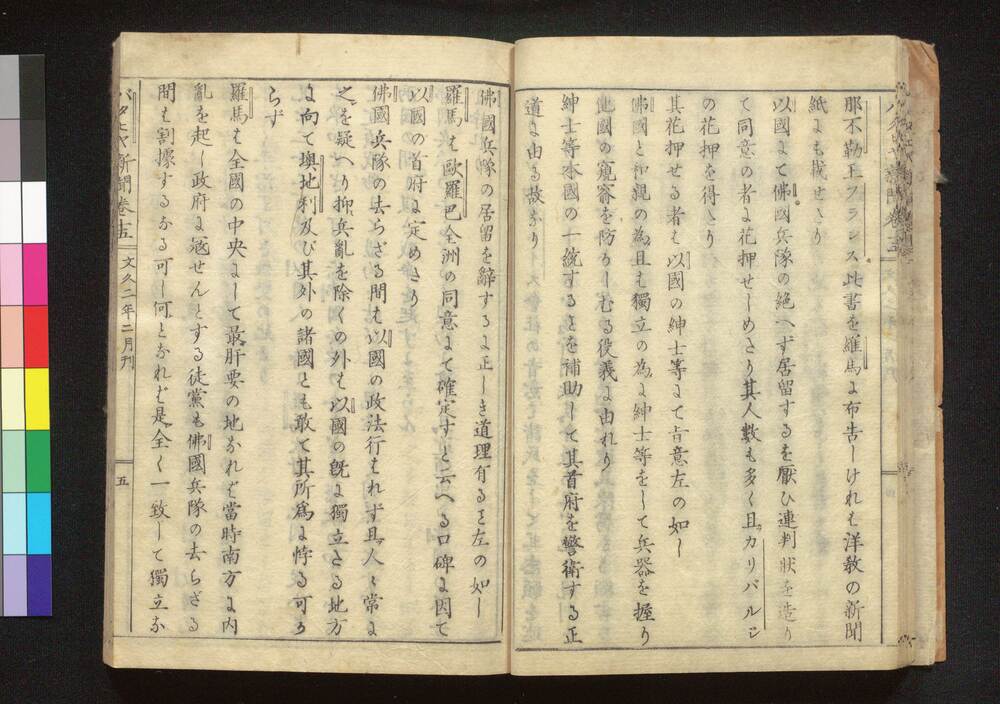 那不勒王フランス此書を羅馬に布告しけれは洋教の新聞
紙にも載せたり
以國にて佛國兵隊の絶へず居留するを厭ひ連判状を造り
て同意の者に花押せしめたり其人數も多く且カリバルジ
の花押を得たり
其花押せる者は以國の紳士等にて旨意左の如し
佛國と和親の為且も獨立の為に紳士等をして兵器を握り
他國の窺窬を防かしむる役義に由れり
紳士等本國の一統することを補助して其首府を警衛する正
道に由る故なり
佛國兵隊の居留を辭するに正しき道理有ること左の如し
羅馬は歐羅巴全洲の同意にて確定すと云へる口碑に因て
以國の首府に定めたり
佛國兵隊の去らざる間は以國の政法行はれず且人々常に
之を疑へり抑兵亂を除くの外は以國の既に獨立たる地方
に向て輿地利及び其外の諸國とも敢て其所為に悖る可か
らず
羅馬は全國の中央にして最肝要の地なれば當時南方に内
亂を起し政府に冦せんとする徒黨も佛國兵隊の去らざる
間は割據するなる可し何となれば是全く一致して獨立な
バタヒヤ新聞 卷十五
文久二年二月刊
五